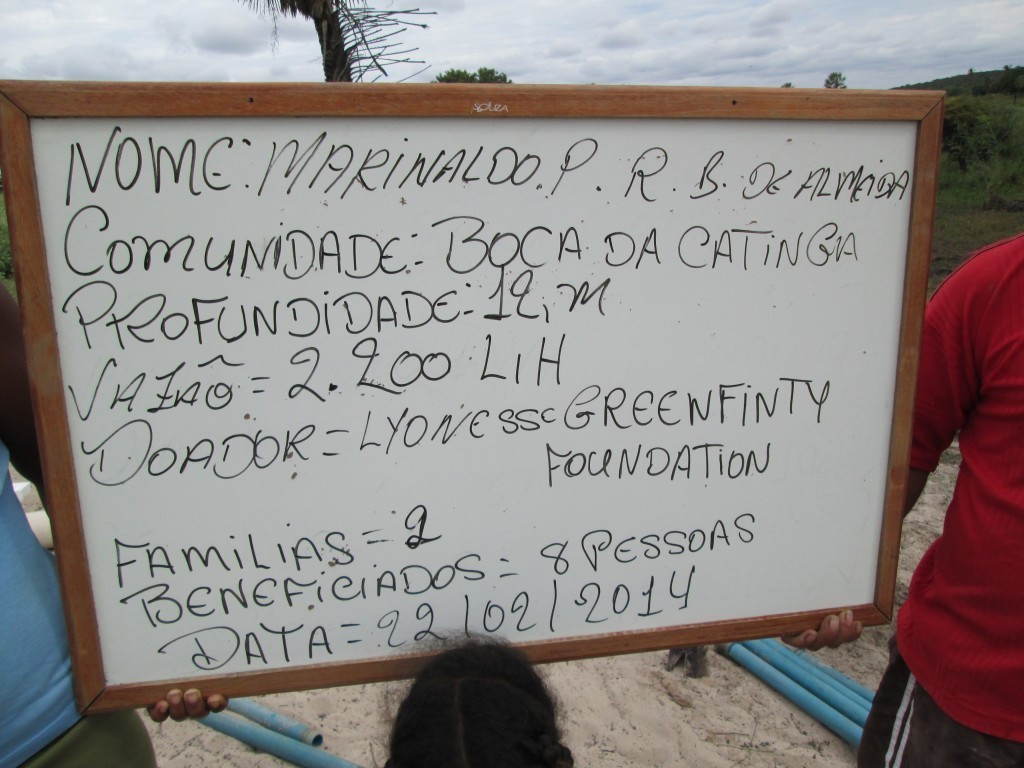 NOME: MARINALDO. P. R. B. DE ALMEIDA
COMUNIDADE: BOCA DA CATINGA
PROFUNDIDADE: 12, M
VAZÃO = 2.200 L/H
DOADOR = LYONESSE GREENFINTY
FOUNDATION
FAMILIAS = 2
BENEFICIADOS = 8 PESSOAS
DATA = 22/02/2014